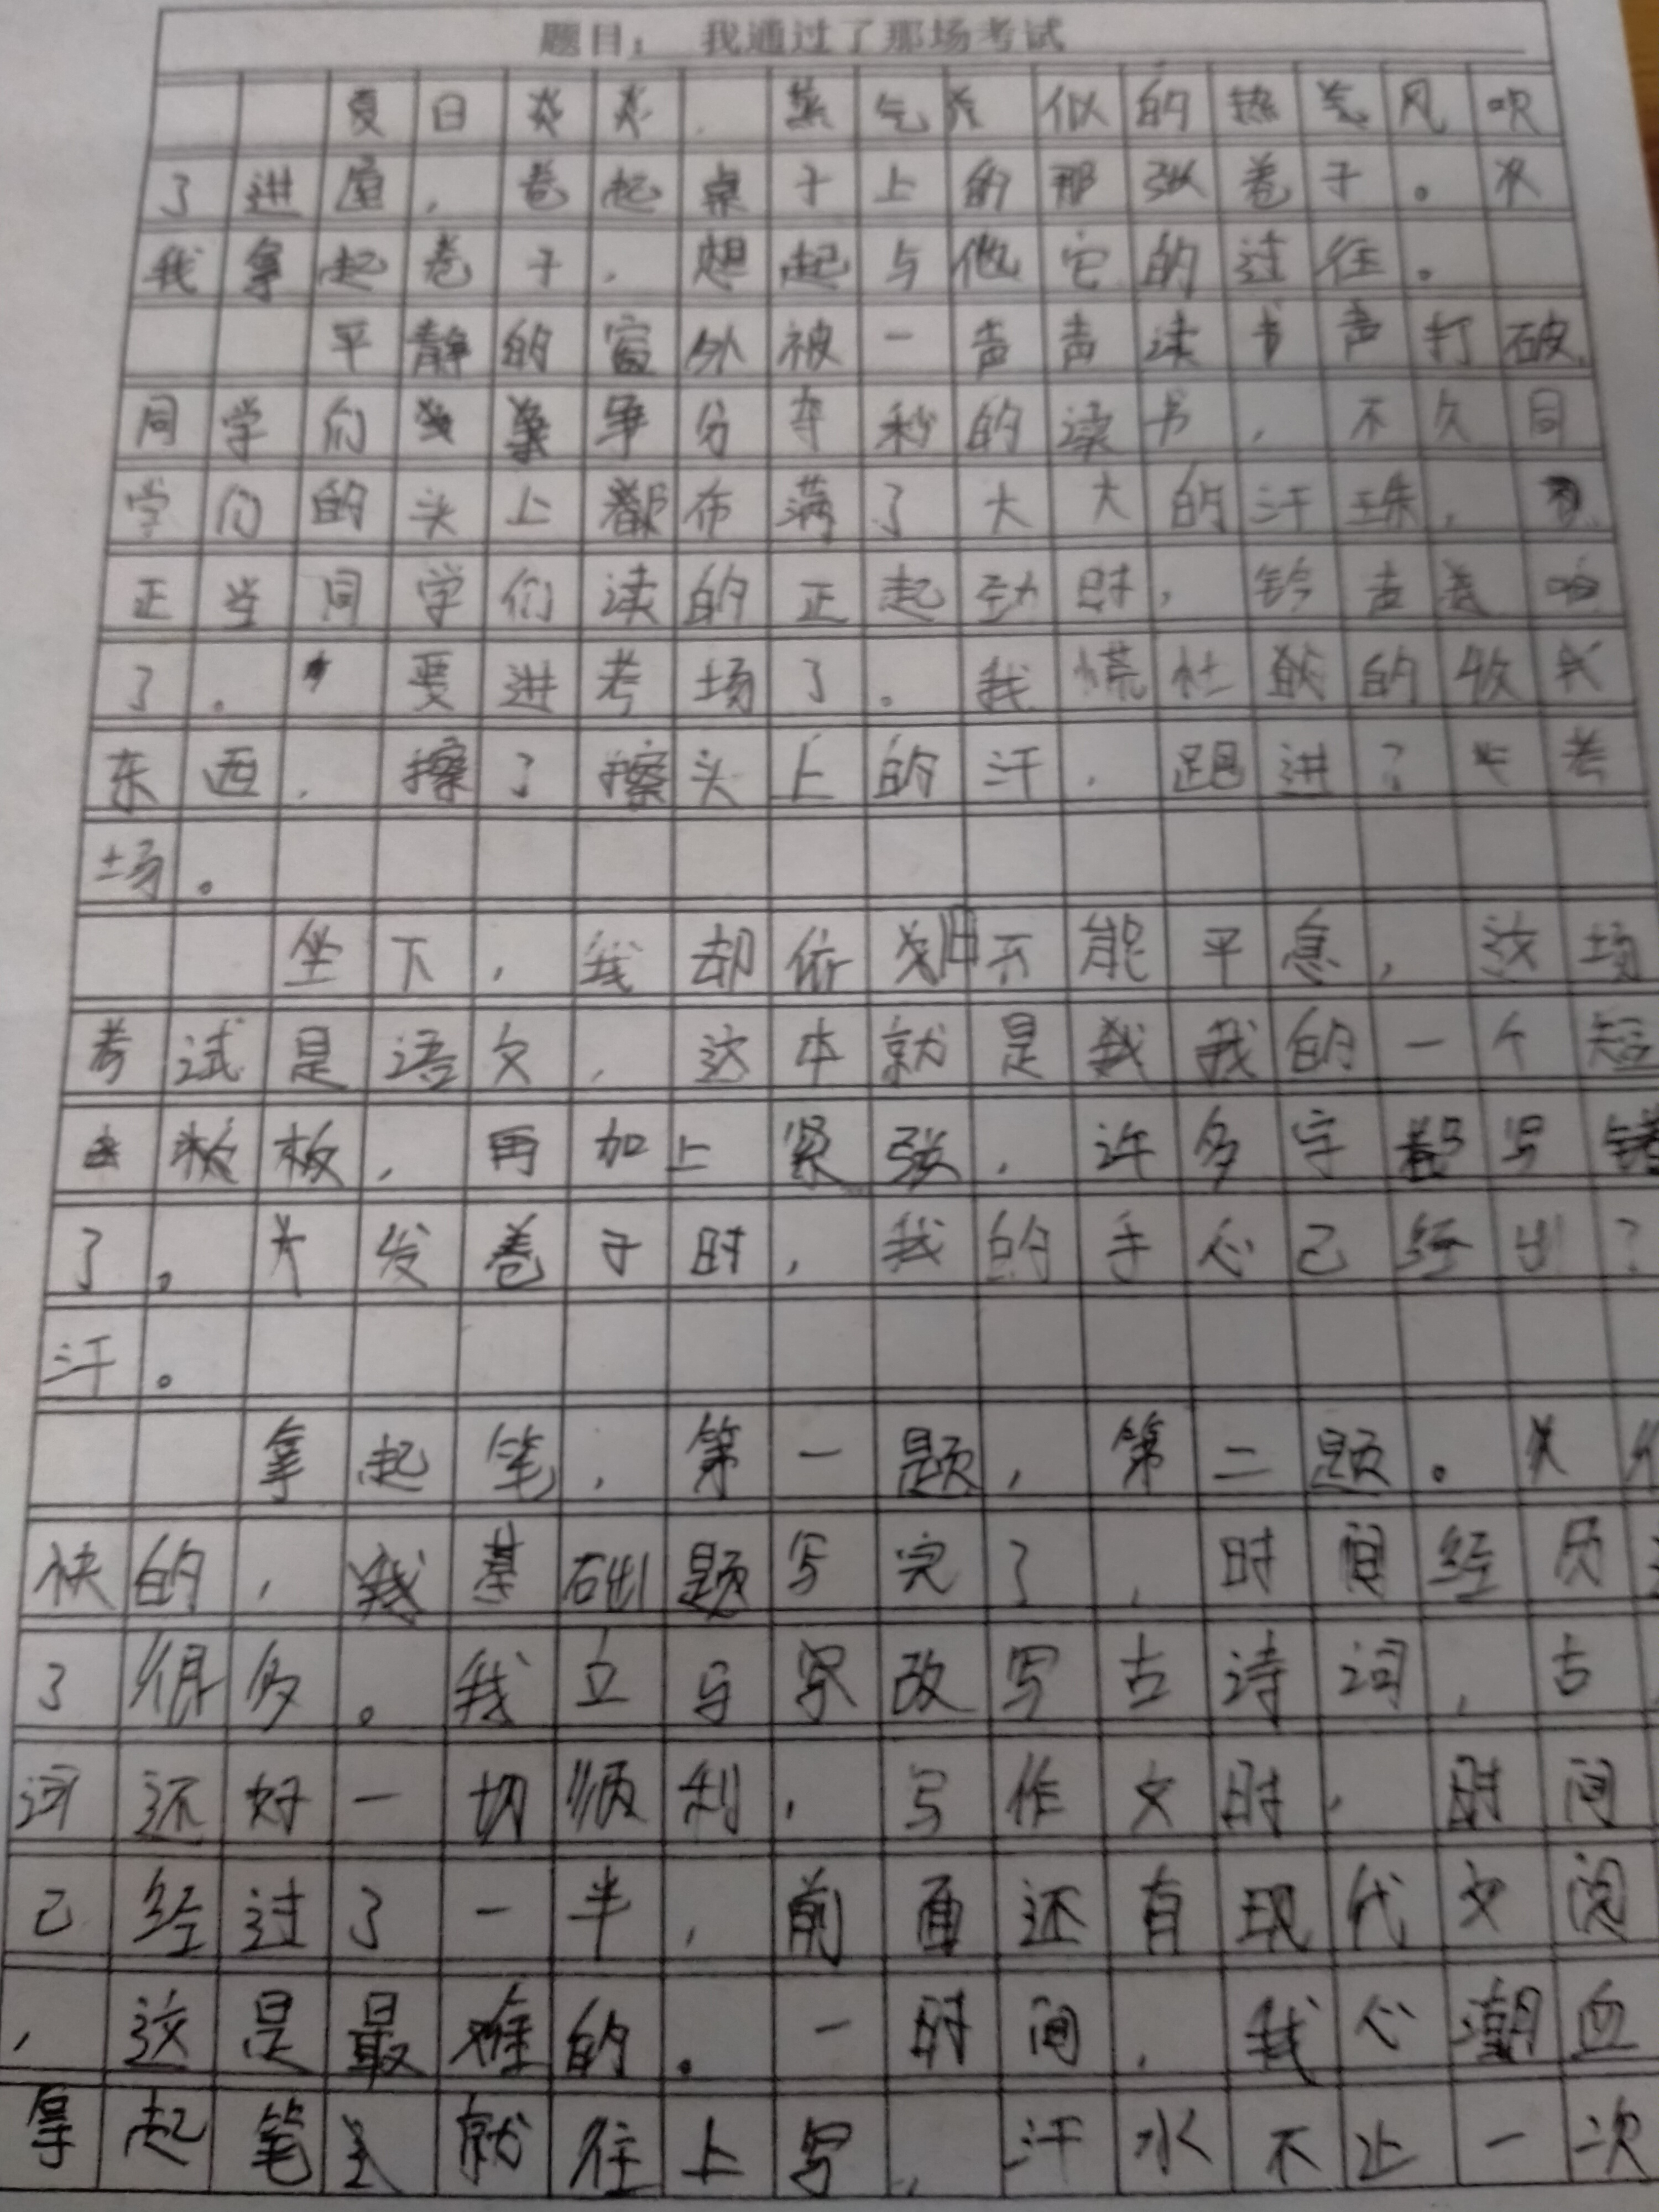 题目： 我通过了那场考试
夏日炎炎，蒸气似的热气风吹
了进屋，卷起桌子上的那张卷子。
我拿起卷子，想起与他它的过往。
平静的窗外被一声声读书声打破，
同学们争分夺秒的读书，不久同
学们的头上都布满了大大的汗珠，
正当同学们读的正起劲时，铃声响
了。要进考场了。我慌忙的收
东西，擦了擦头上的汗，跑进了考
场。
坐下，我却依然不能平息，这场
考试是语文，这本就是我我的一个短
板，再加上紧张，许多字都写错
了。发卷子时，我的手心已经出了
汗。
拿起笔，第一题，第二题。
快的，我基础题写完了，时间经历
了很多。我立马写改写古诗词，古
词还好一切顺利，写作文时，时间
已经过了一半，前面还有现代文阅
，这是最难的。一时间，我心潮血
拿起笔就往上写，汗水不止一次